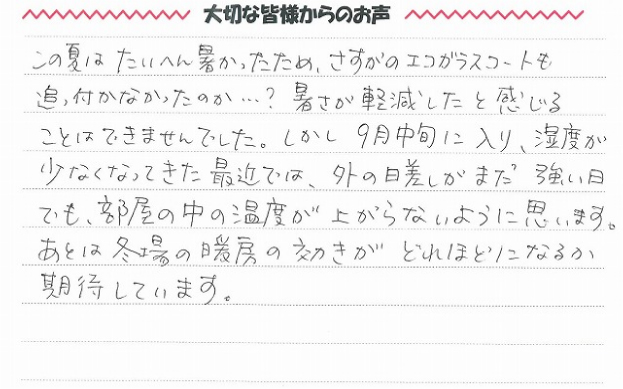 大切な皆様からのお声
この夏は たいへん暑かったため、さすがのエコガラスコートも
追っ付かなかったのか…？ 暑さが軽減したと感じる
ことはできませんでした。しかし 9月中旬に入り、湿度が
少なくなってきた最近では、外の日差しがまだ強い日
でも、部屋の中の温度が上がらないように思います。
あとは冬場の暖房の効きが どれほどになるか
期待しています。